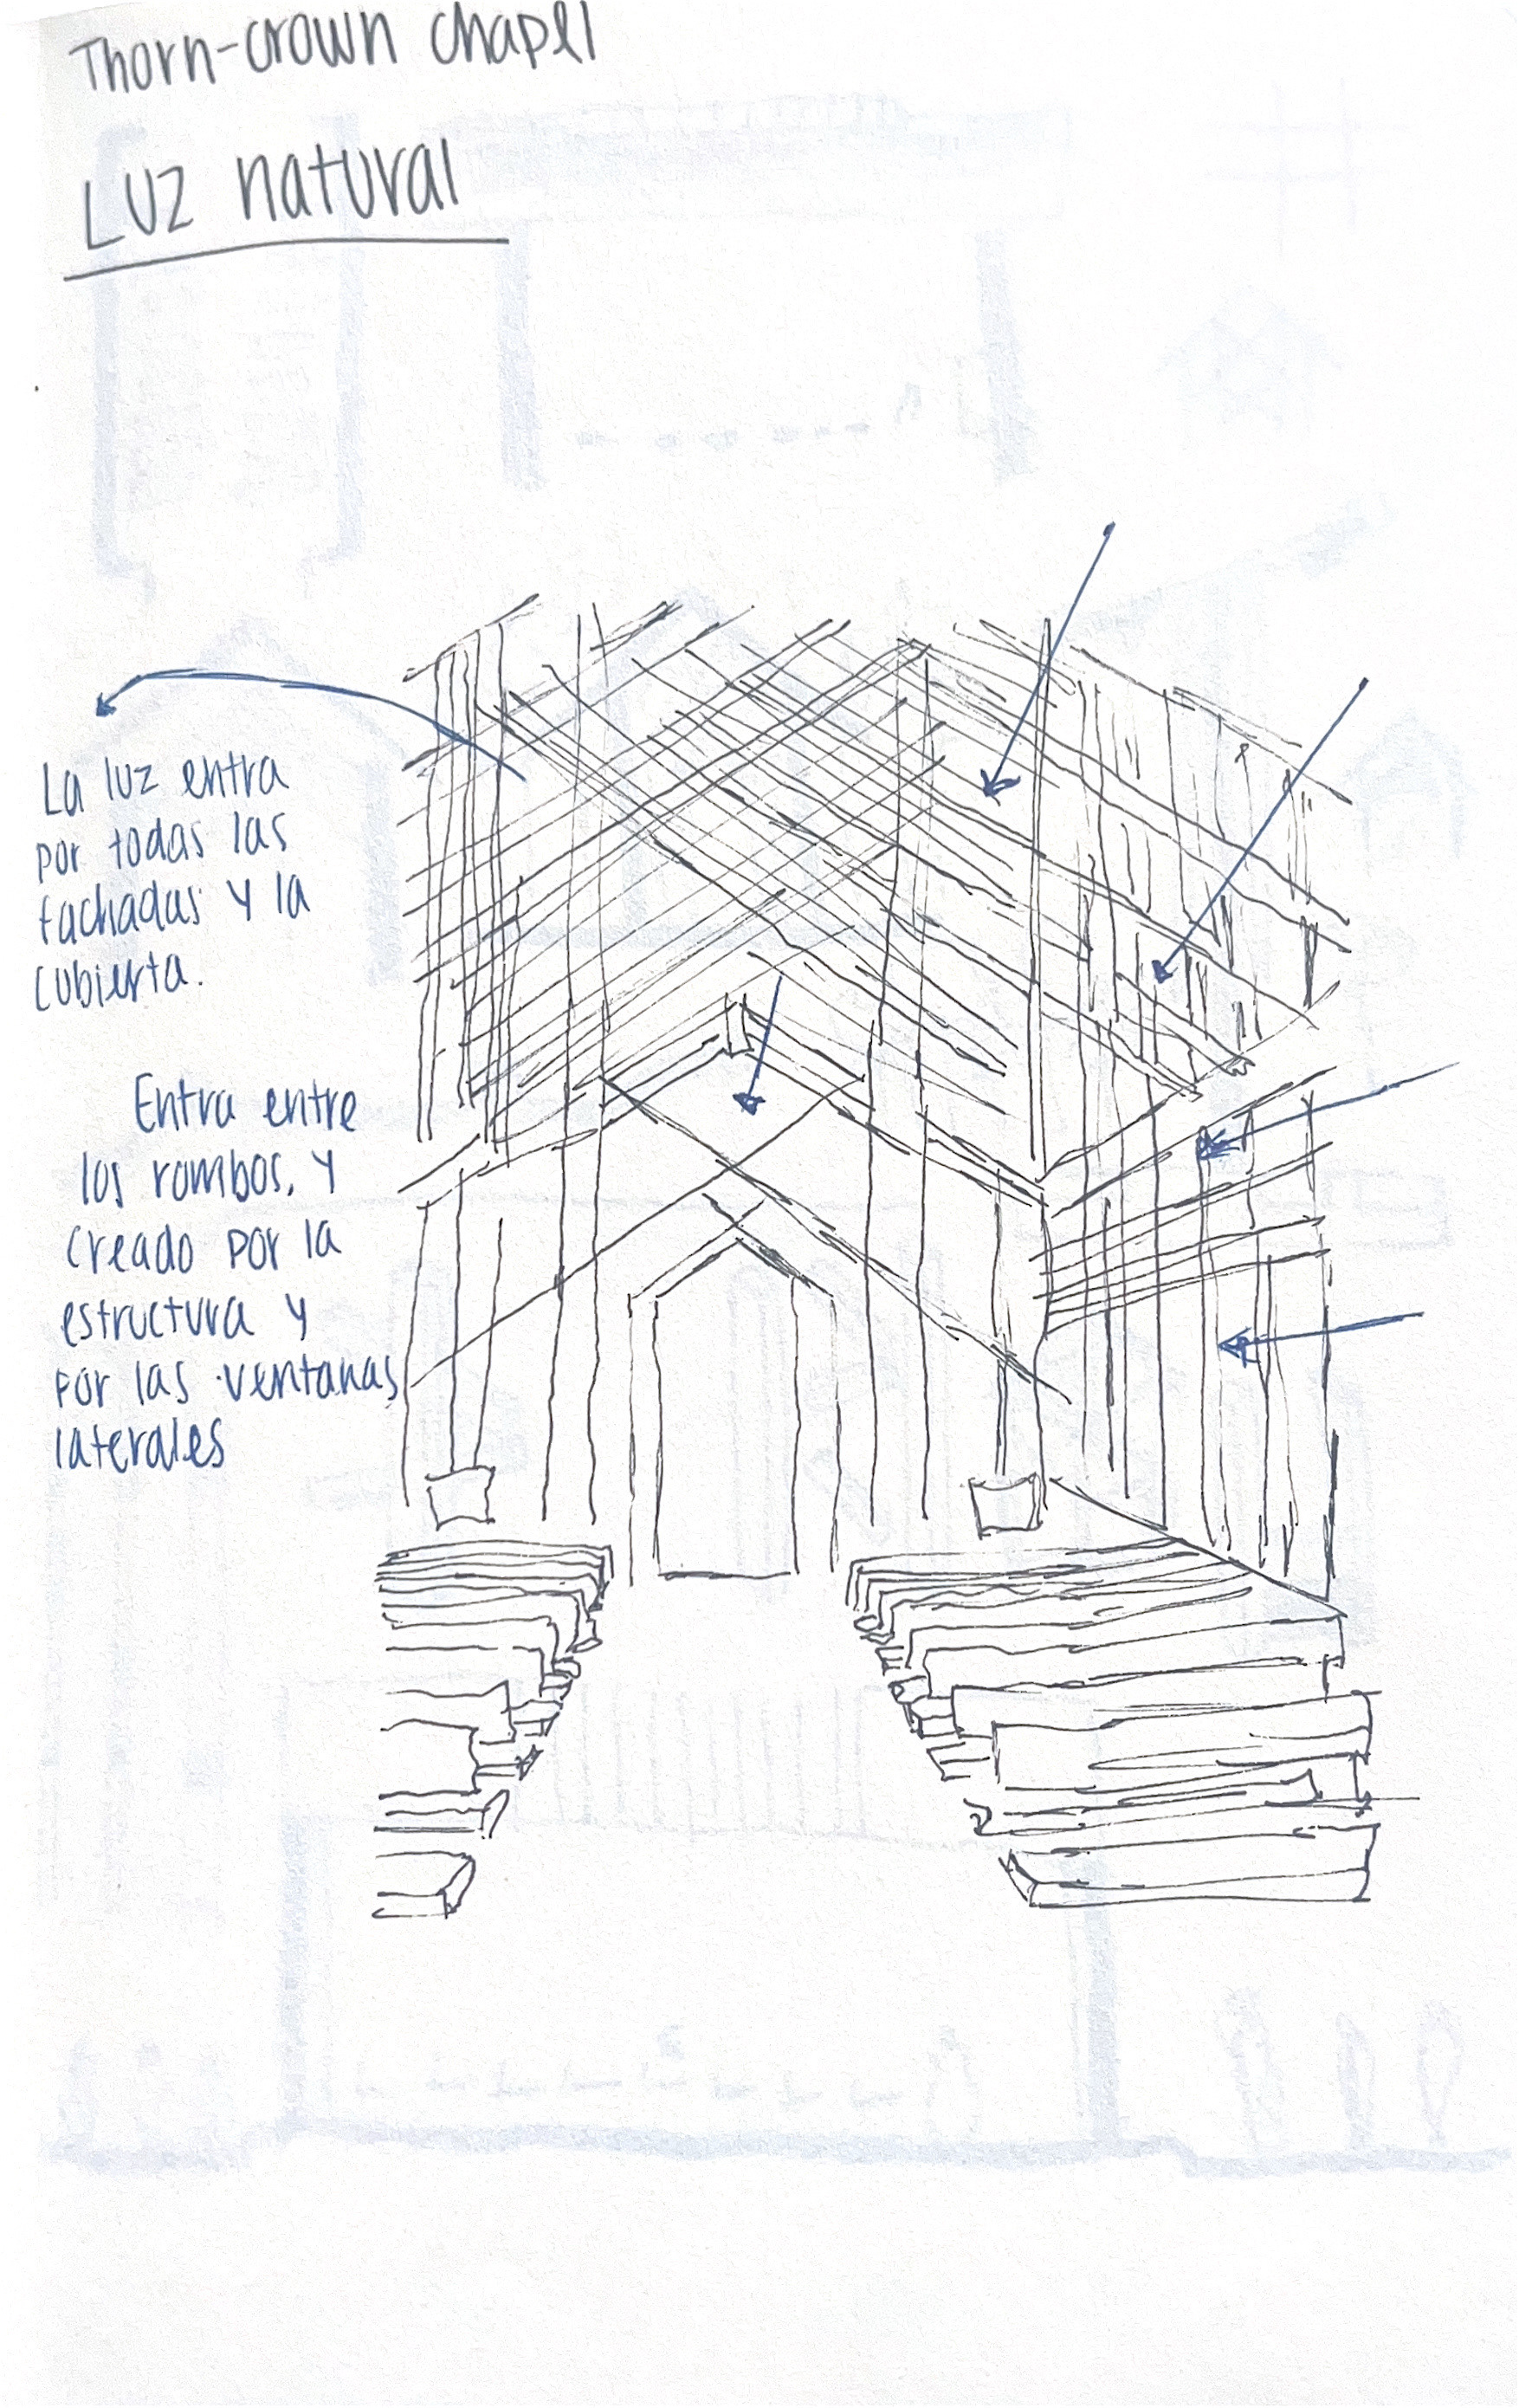 Thorn-crown chapel
Luz natural
La luz entra
por todas las
fachadas y la
cubierta.
Entra entre
los rombos, y
creado por la
estructura y
por las ventanas
laterales